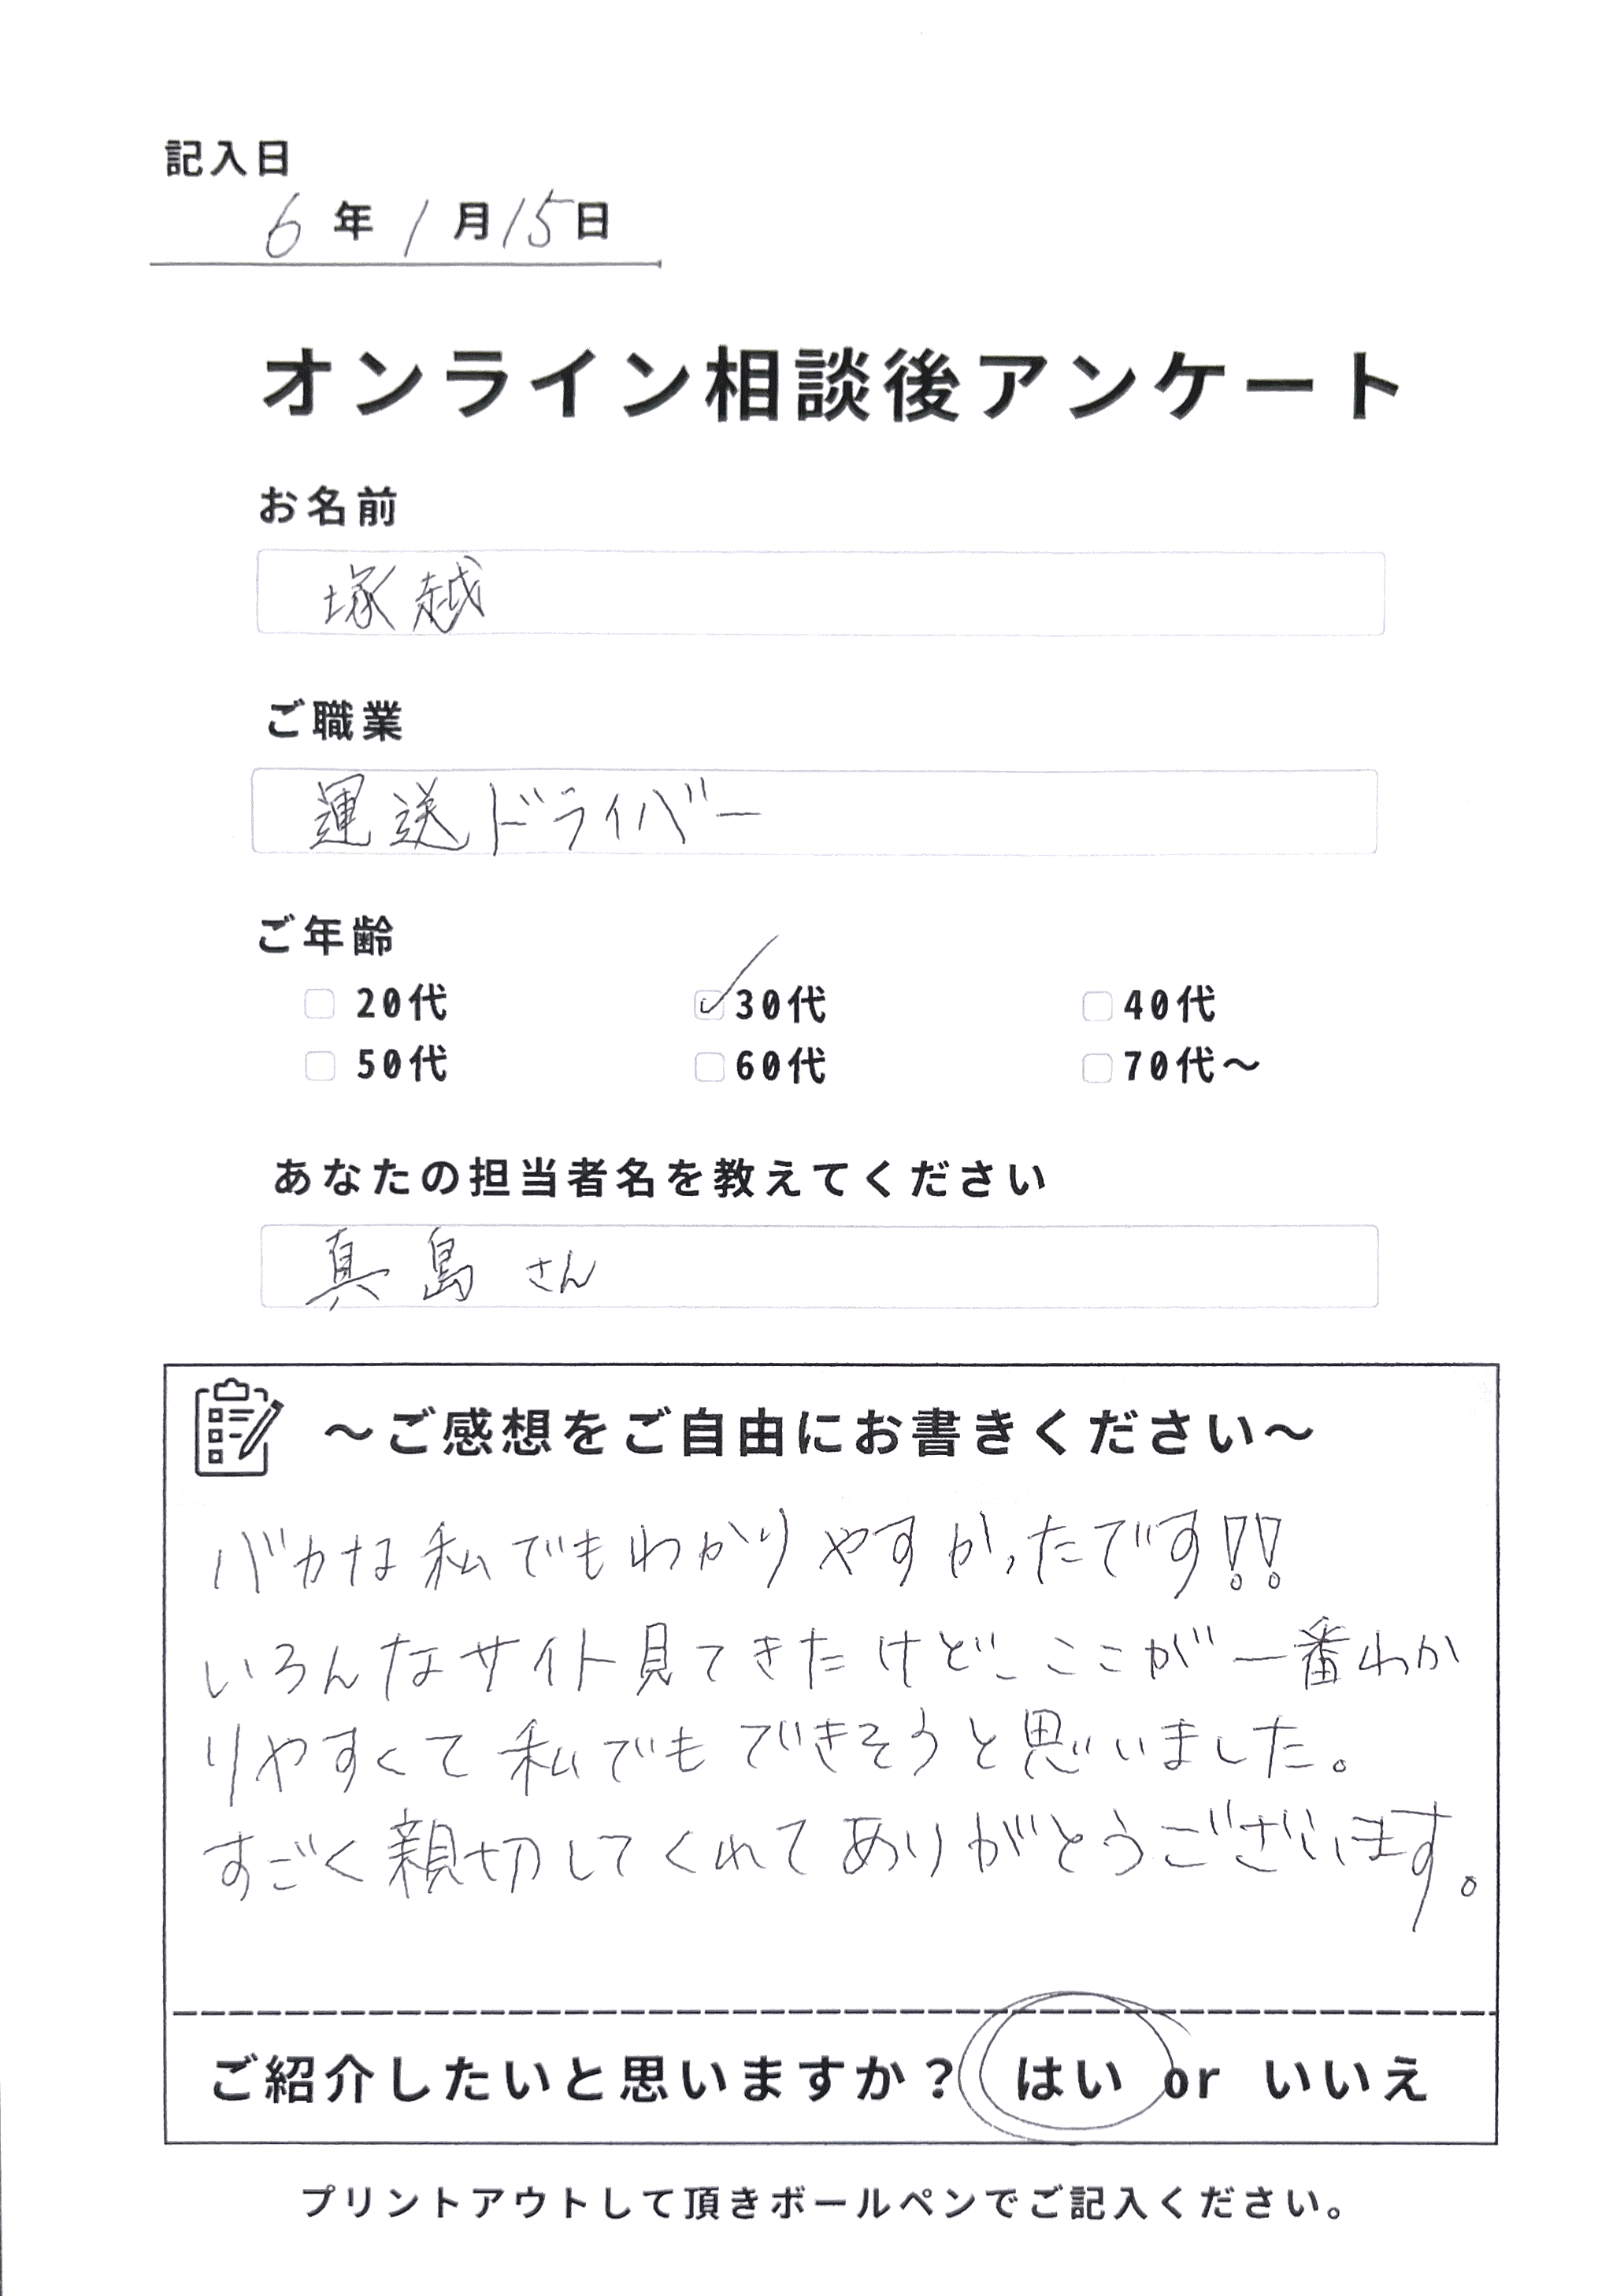 記入日
6年1月15日
オンライン相談後アンケート
お名前
塚越
ご職業
運送ドライバー
ご年齢
20代 30代 40代
50代 60代 70代〜
あなたの担当者名を教えてください
真島さん
〜ご感想をご自由にお書きください〜
バカな私でもわかりやすかったです!!
いろんなサイト見てきたけどここが一番わか
りやすくて私でもできそうと思いました。
すごく親切してくれてありがとうございます。
ご紹介したいと思いますか? はい or いいえ
プリントアウトして頂きボールペンでご記入ください。